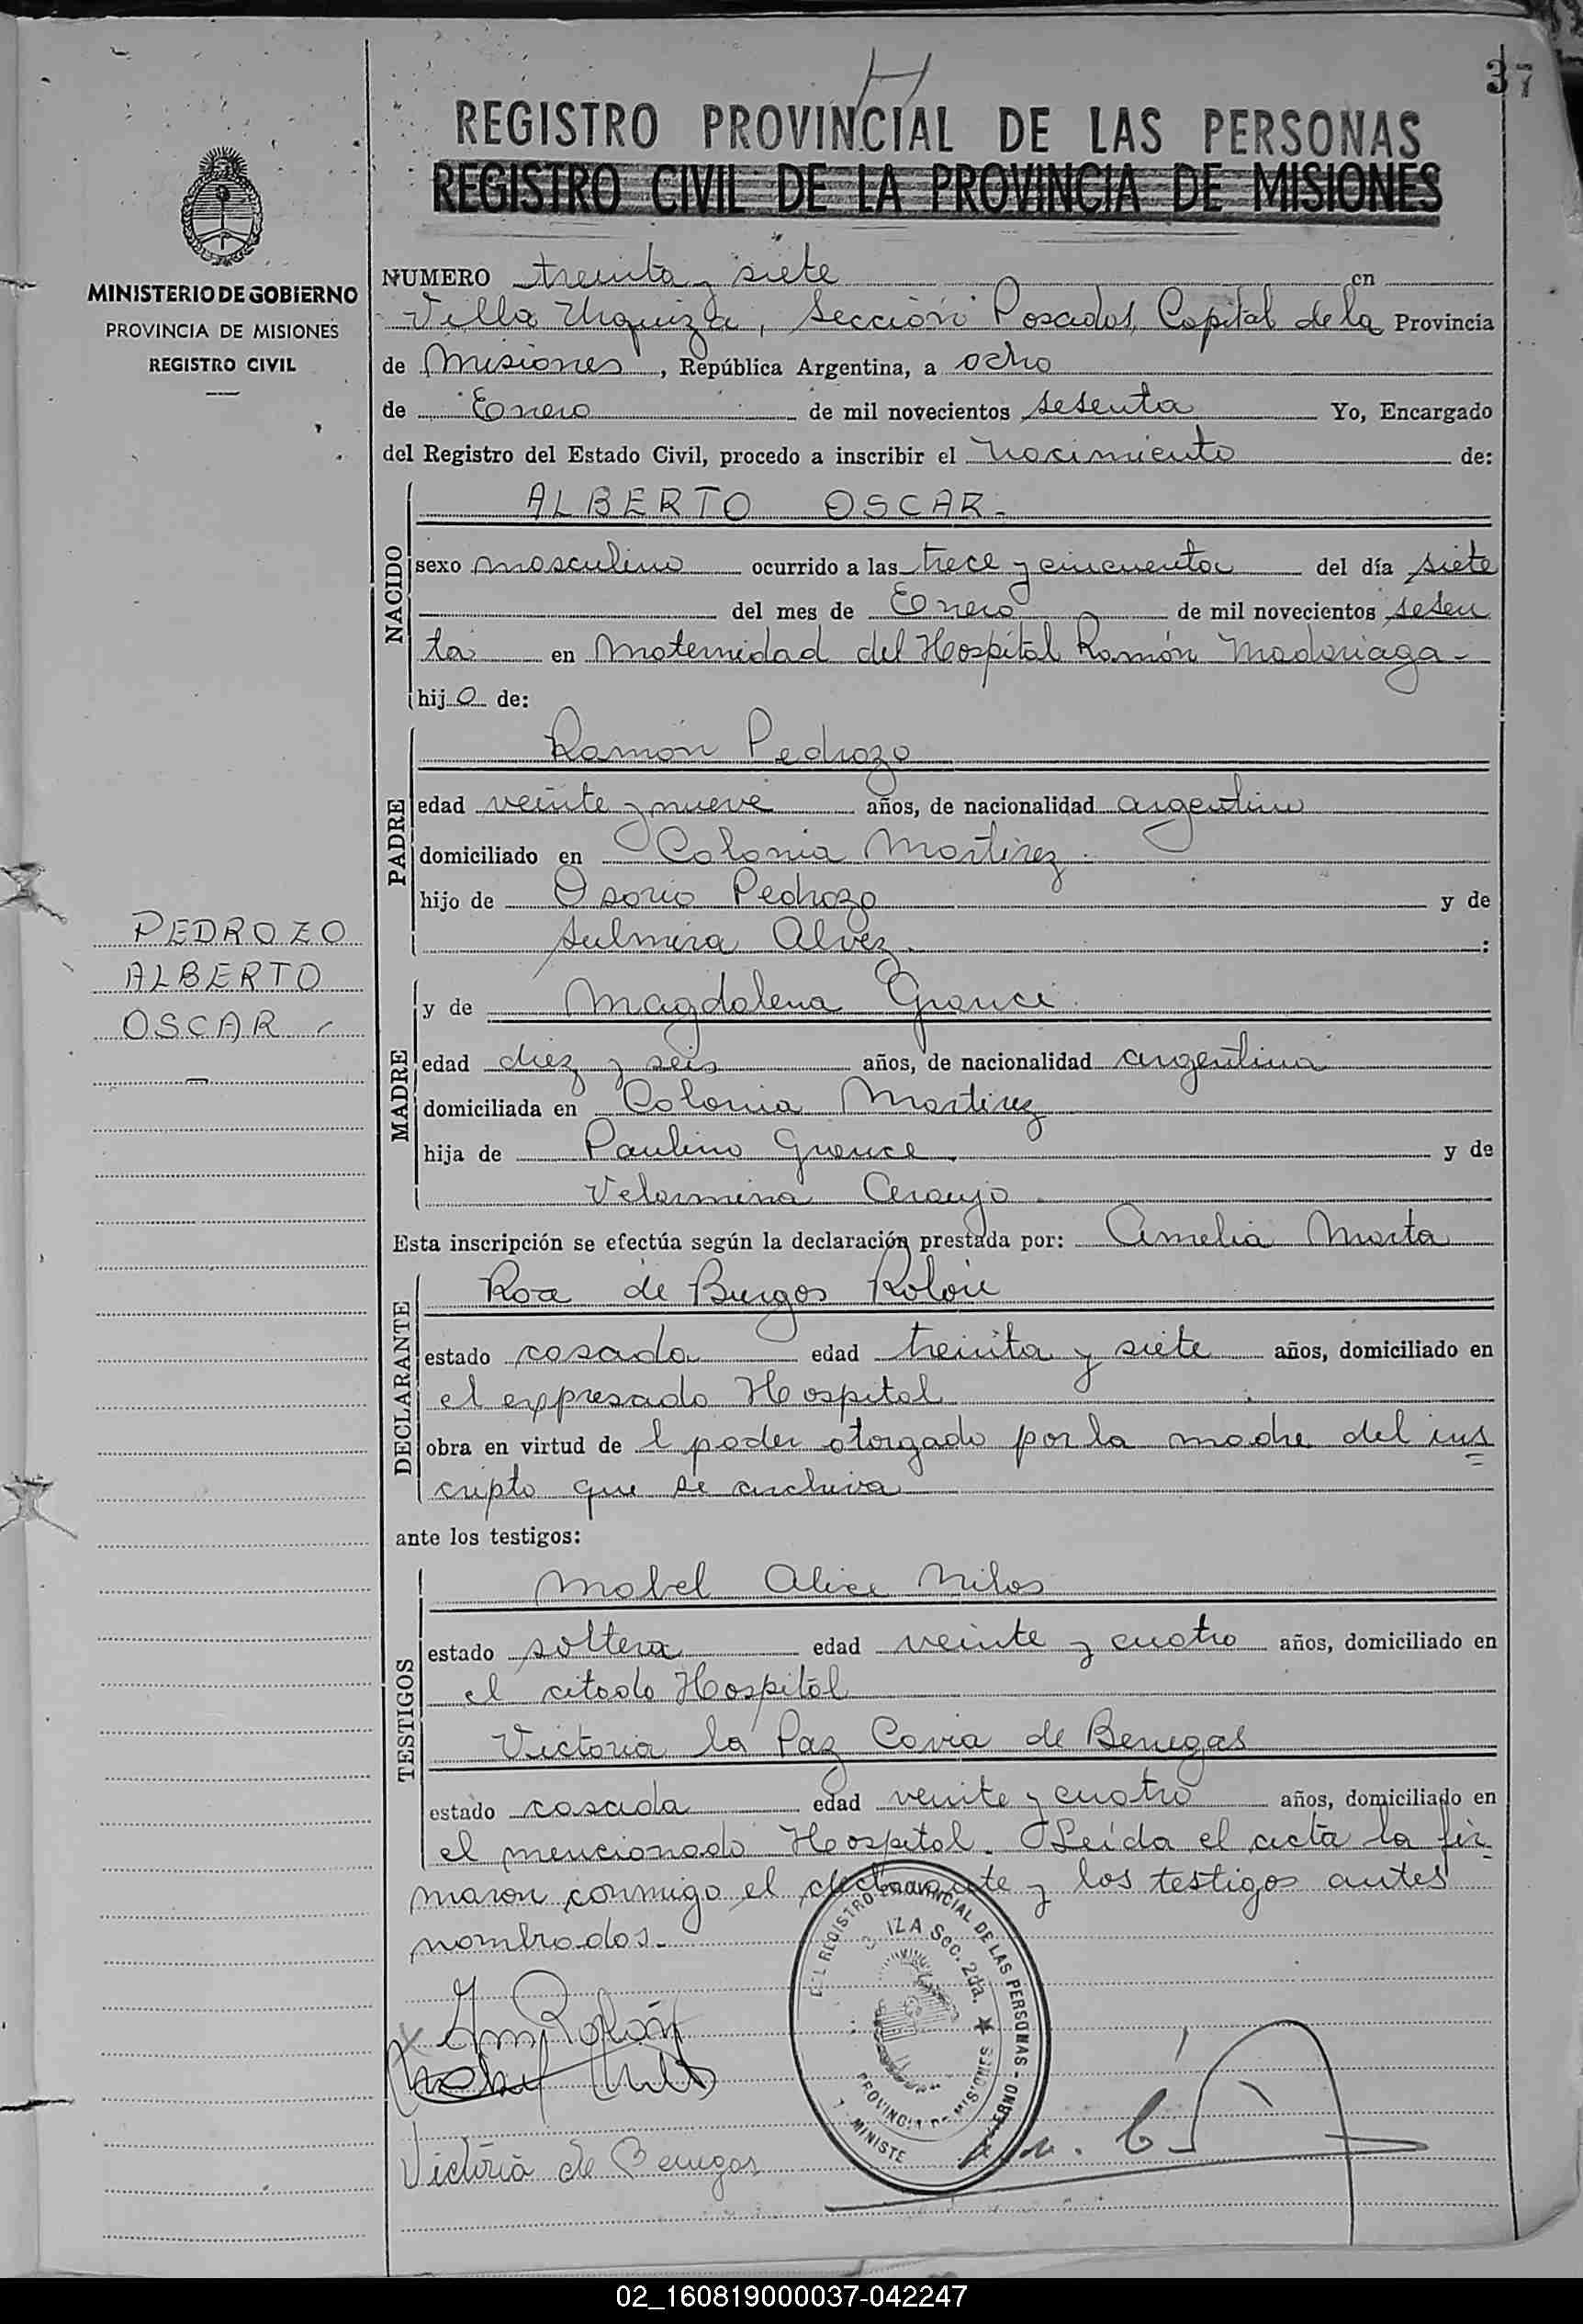 37
REGISTRO PROVINCIAL DE LAS PERSONAS
REGISTRO CIVIL DE LA PROVINCIA DE MISIONES
MINISTERIO DE GOBIERNO
PROVINCIA DE MISIONES
REGISTRO CIVIL
NUMERO treinta y siete en
Villa Urquiza, Sección Posadas, Capital de la Provincia
de Misiones, República Argentina, a ocho
de Enero de mil novecientos sesenta Yo, Encargado
del Registro del Estado Civil, procedo a inscribir el nacimiento de:
NACIDO
ALBERTO OSCAR.-
sexo masculino ocurrido a las trece y cincuenta del día siete
del mes de Enero de mil novecientos sesen
ta en Maternidad del Hospital Ramón Madariaga-
hijo de:
PADRE
Ramón Pedrozo
edad veinte y nueve años, de nacionalidad argentino
domiciliado en Colonia Martirez
hijo de Osorio Pedrozo y de
Sulmira Alvez.:
PEDROZO
ALBERTO
OSCAR
MADRE
y de Magdalena
edad diez y seis años, de nacionalidad argentina
domiciliada en Colonia Martirez
hija de Paulino y de
Velarmina Araujo
Esta inscripción se efectúa según la declaración prestada por: Amelia Marta
DECLARANTE
Roa de Burgos Rolón
estado casada edad treinta y siete años, domiciliado en
el expresado Hospital
obra en virtud de l poder otorgado por la madre del ins
cripto que se archiva
ante los testigos:
TESTIGOS
Mabel Alice Milos
estado soltera edad veinte y cuatro años, domiciliado en
el citado Hospital
Victoria la Paz Coria de Benegas
estado casada edad veinte y cuatro años, domiciliado en
el mencionado Hospital. Leída el acta la fir
maron conmigo el declarante y los testigos antes
nombrados.-
REGISTRO PROVINCIAL DE LAS PERSONAS
IZA Sec. 2da.
PROVINCIA DE MISIONES
MINISTE
Victoria de Benegas
02_160819000037-042247